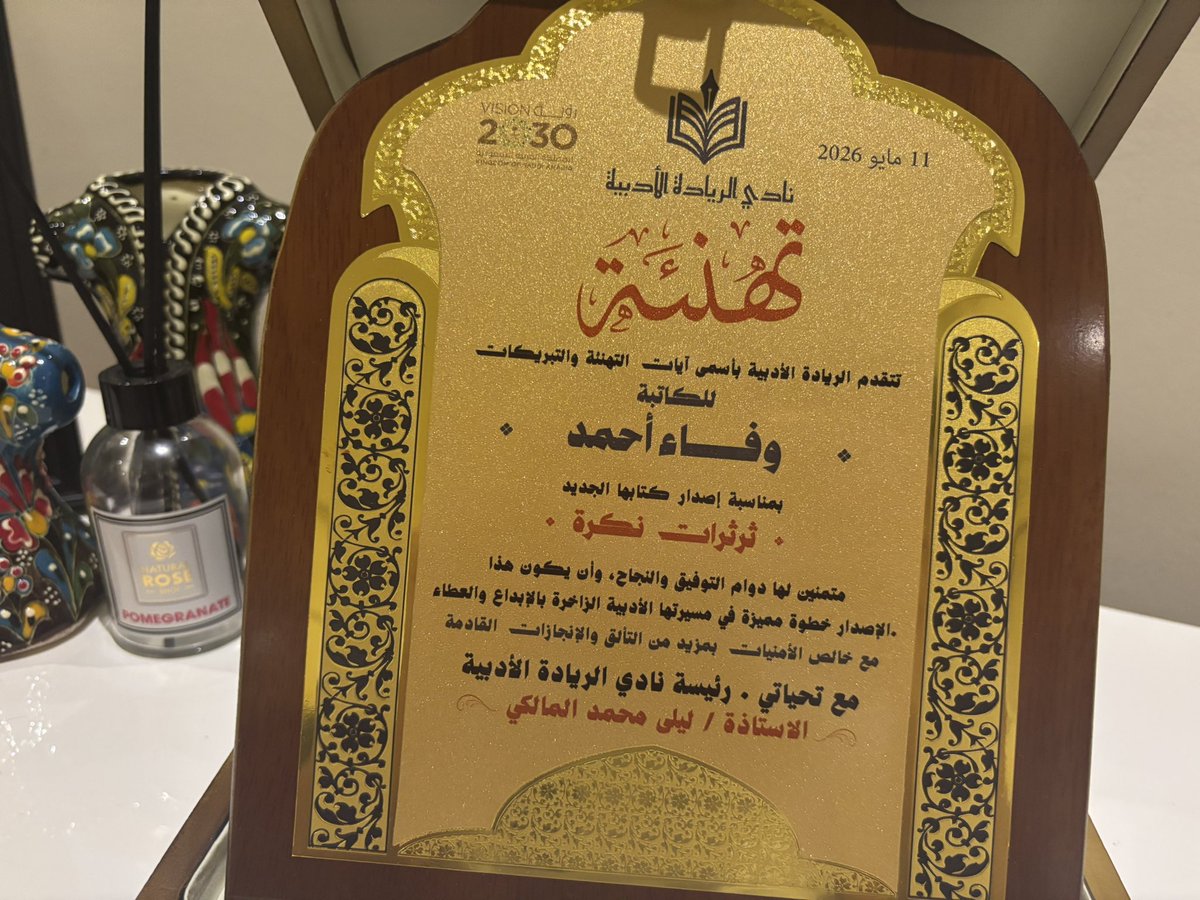 VISION رؤيـــة
2030
المملكة العربية السعودية
KINGDOM OF SAUDI ARABIA
11 مايو 2026
نادي الريادة الأدبية
تهنئة
تتقدم الريادة الأدبية بأسمى آيات التهنئة والتبريكات
للكاتبة
وفـــاء أحمد
بمناسبة إصدار كتابها الجديد
ثرثرات نكرة
متمنين لها دوام التوفيق والنجاح، وأن يكون هذا
الإصدار خطوة مميزة في مسيرتها الأدبية الزاخرة بالإبداع والعطاء.
مع خالص الأمنيات بمزيد من التألق والإنجازات القادمة
مع تحياتي . رئيسة نادي الريادة الأدبية
الاستاذة / ليلى محمد المالكي
NATURA
ROSE
POMEGRANATE